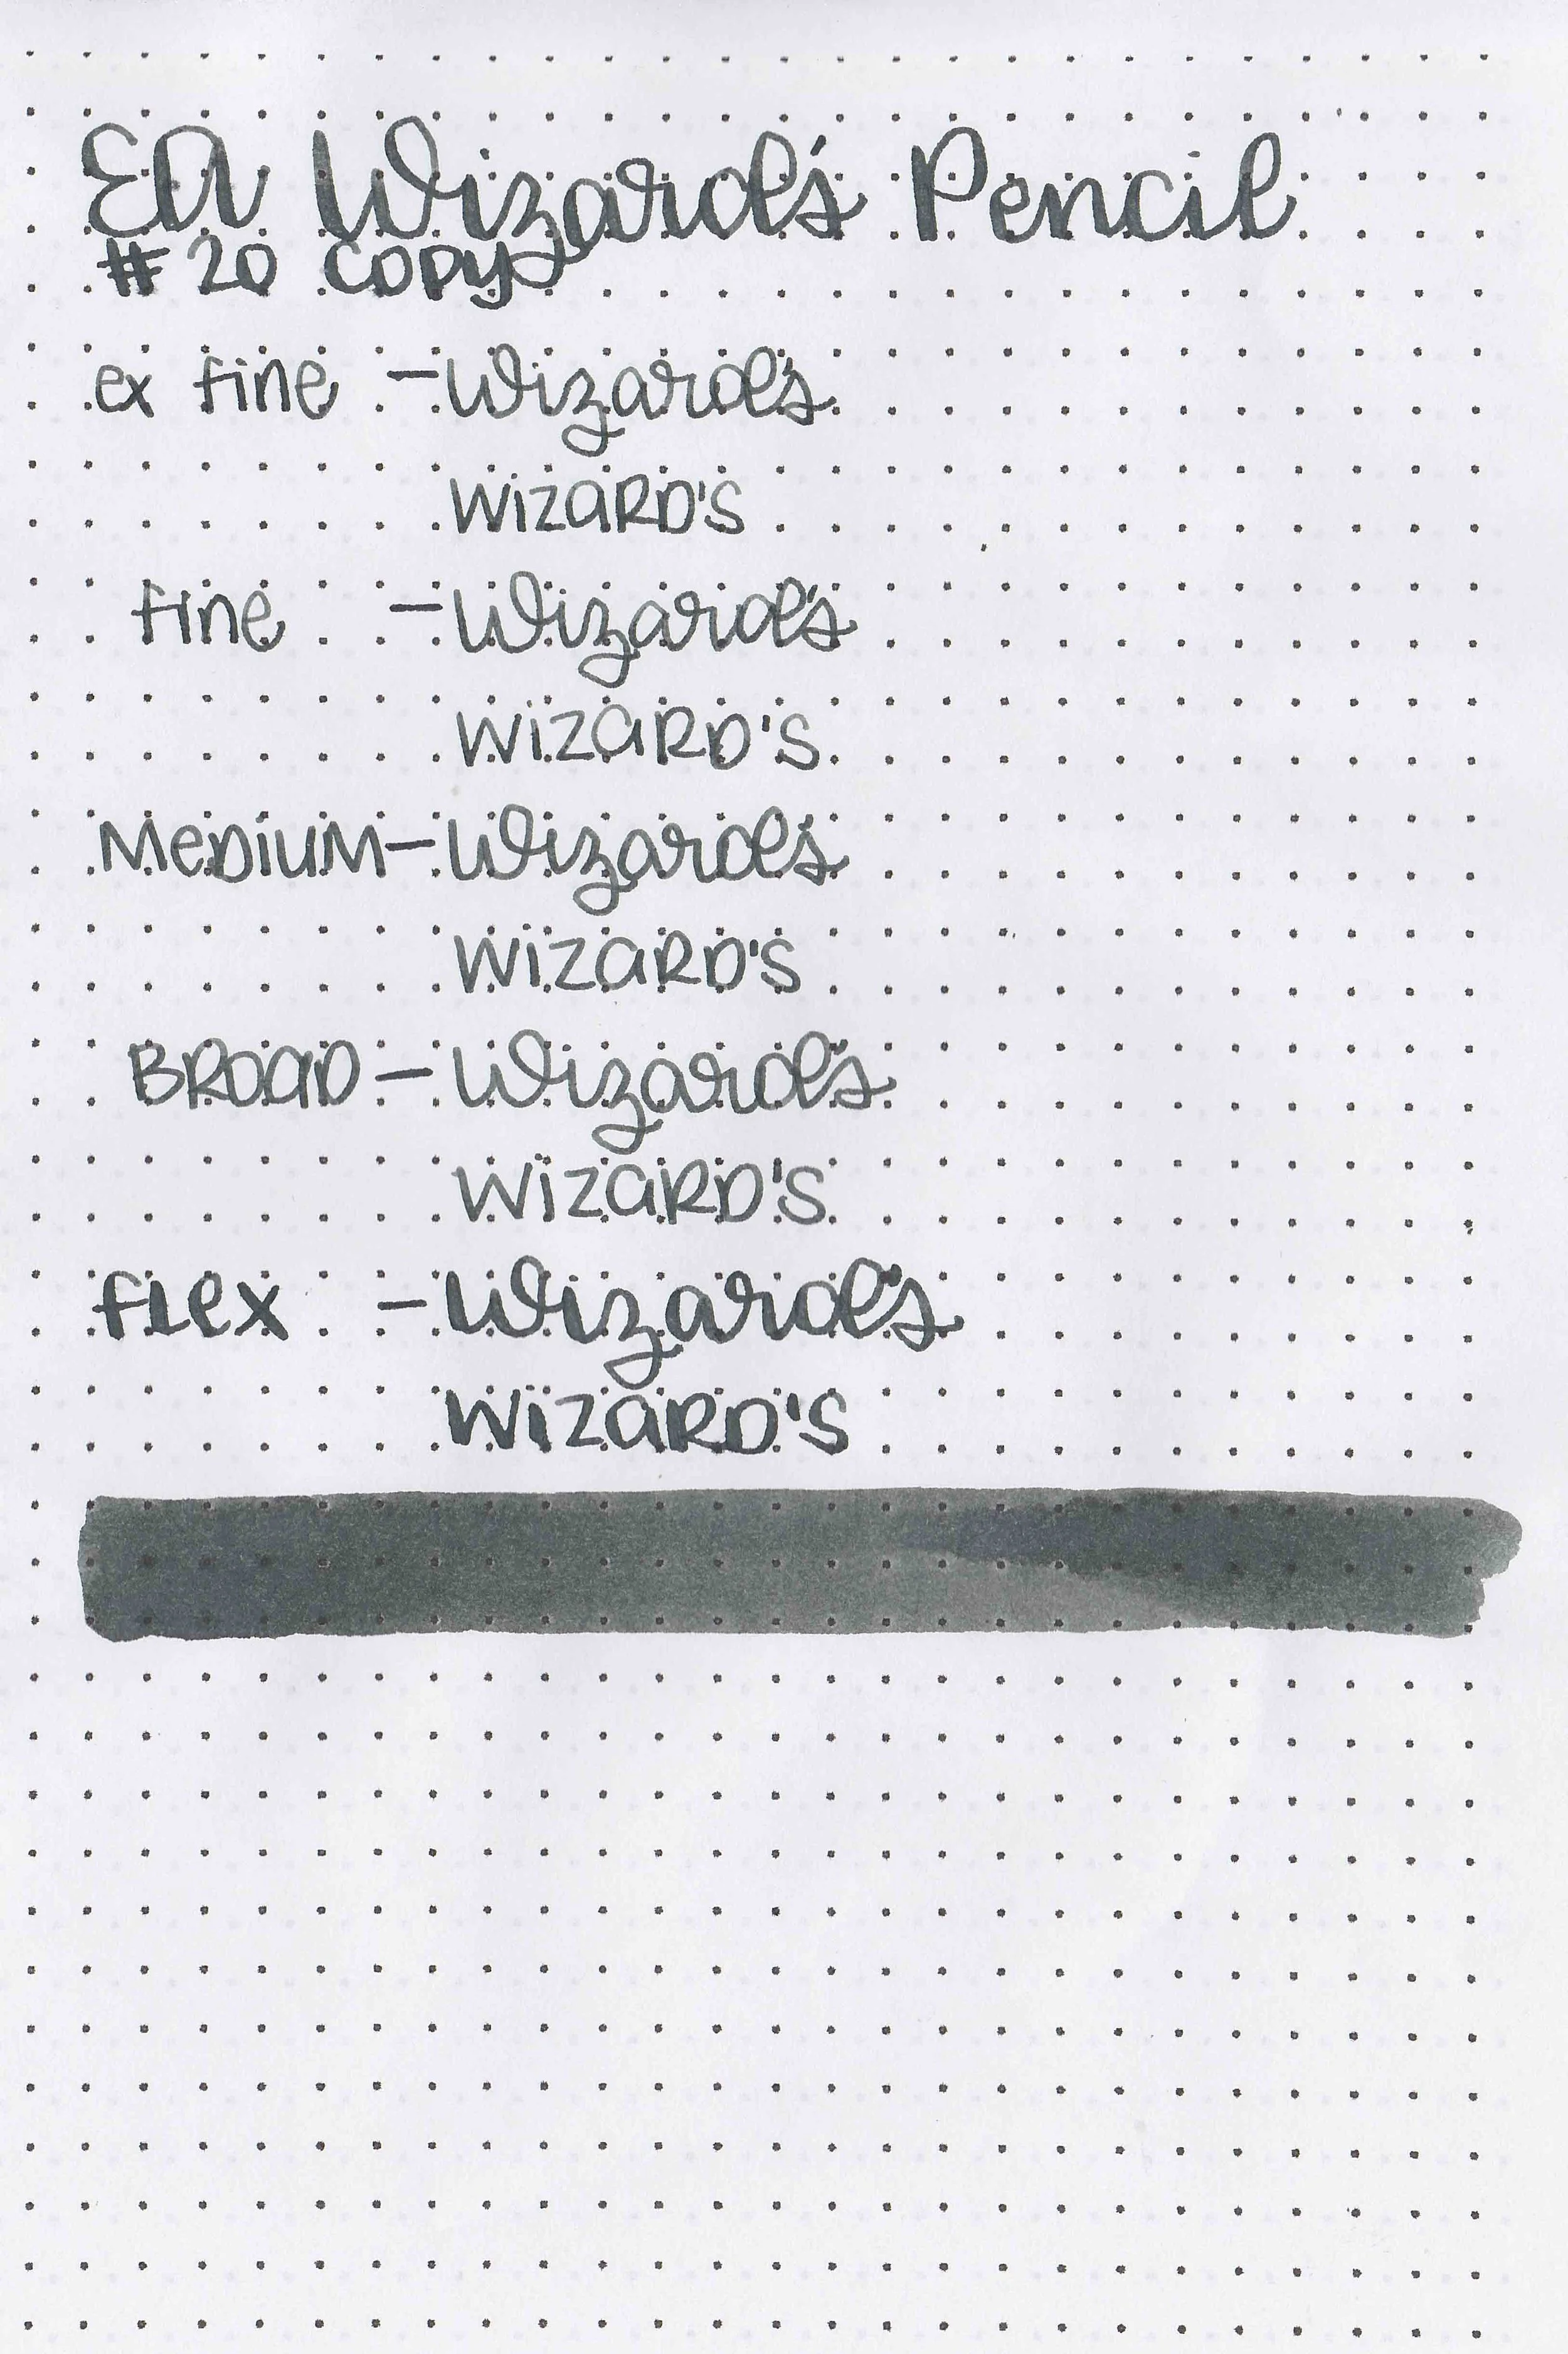 EA Wizard's Pencil
#20 COPY
ex fine - Wizard's
WiZARD'S
fine - Wizard's
WiZARD'S
MeDiUM - Wizard's
WiZARD'S
BROAD - Wizard's
WiZARD'S
flex - Wizard's
WiZARD'S